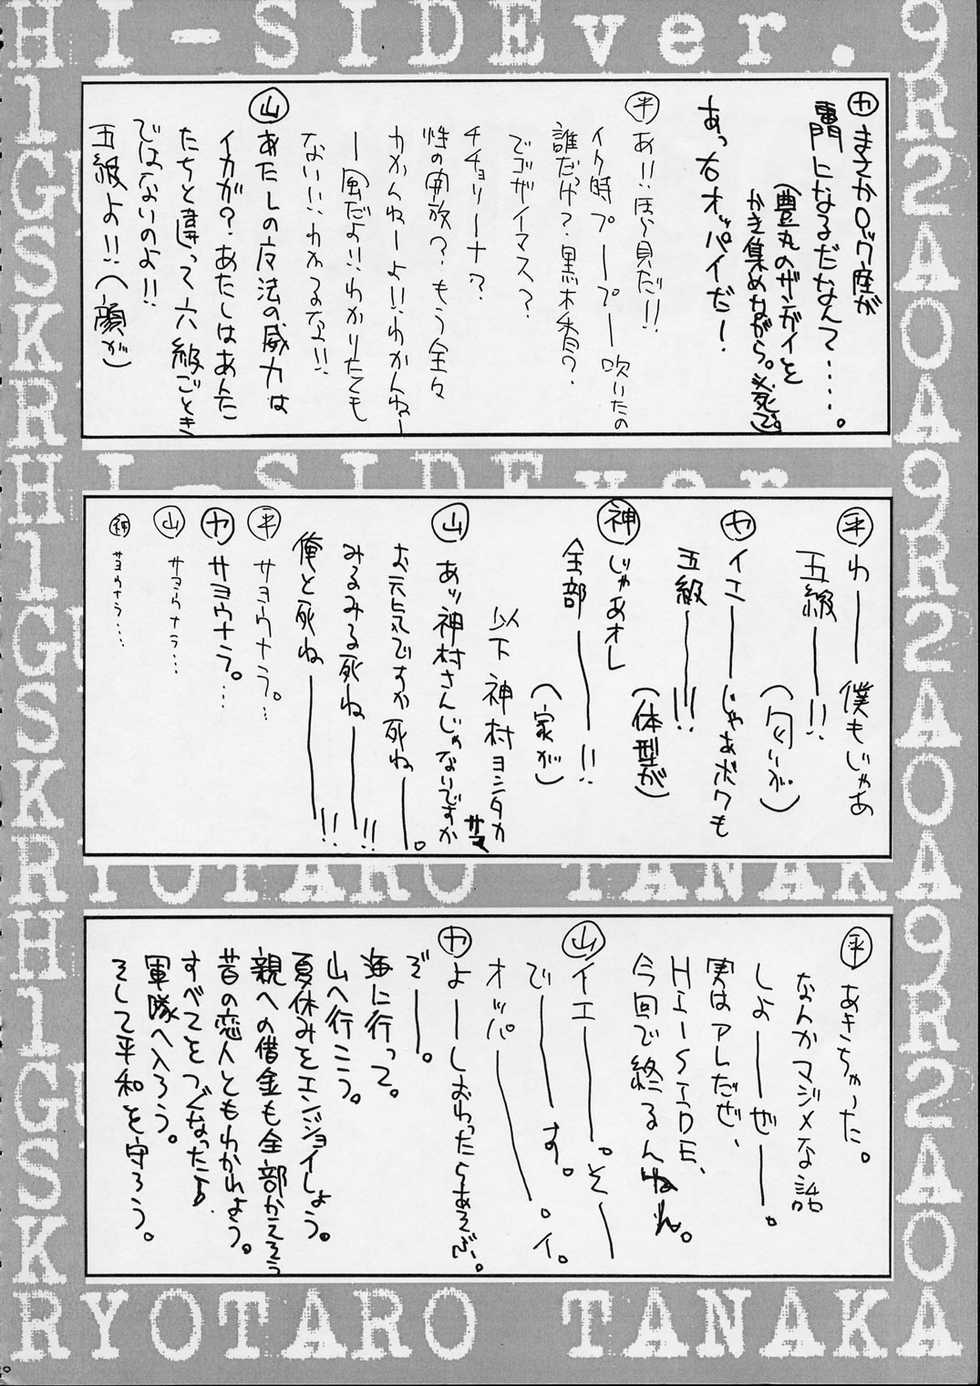 HI-SIDEver.9
カ まさかロック座が
になるだなんて・・・・・。
(豊丸のザンガイを
かき集めながら。必死で。)
あっ 右オッパイだー!
平 あ!!馬貝だ!!
イク時プープー吹いたの
誰だっけ?黒木香?
でゴザイマス?
チチョリーナ?
性の解放?もう全々
わかんねーよ!!わかんねー
ー風だよ!!わかりたくも
ない!!わかるな!!
山 あたしの反法の威力は
イカが?あたしはあんた
たちと違って六級ごとき
ではないのよ!!
五級よ!!(顔が)
HI-SIDEver.
平 わーー 僕もじゃあ
五級ーー!! (匂いが)
カ イエーー じゃあボクも
五級ーー!!! (体型が)
神 じゃあオレ
全部ーー!! (家が)
以下 神村ヨシタカ サマ
山 あッ神村さんじゃないですか
お元気ですか 死ねーー。
みるみる死ねーー!!
俺と死ねーー!!
平 サヨウナラ。…
カ サヨウナラ。…
山 サヨウナラ…
神 サヨウナラ…
RYOTARO TANAKA
平 あきちゃった。
なんかマジメな話
しよーーぜーー。
実はアレだぜ、
HI-SIDE、
今回で終るんだね。
山 イエーー。そーー
でーーす。
オッパーー。イ。
カ よーーしおわったらあそぶ。
ぞーー。
海に行って。
山へ行こう。
夏休みをエンジョイしよう。
親への借金も全部かえそう
昔の恋人ともわかれよう。
すべてをつぐなったら
軍隊へ入ろう。
そして平和を守ろう。
RYOTARO TANAKA